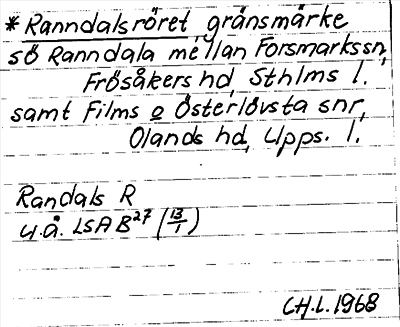 * Ranndalsröret, gränsmärke
sö Ranndala mellan Forsmarkssn,
Frösåkers hd, Sthlms l.
samt Films o Österlövsta snr,
Olands hd, Upps. l.
Randals R
u.å. LSA B27 (13/1)
CH.L. 1968